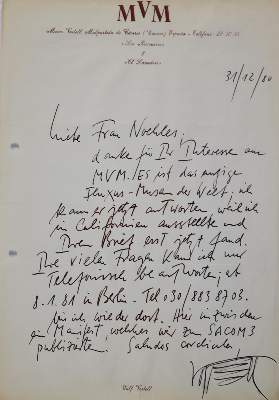 MVM
Museo Vostell Malpartida de Cáceres (Cáceres) España
31/12/80
Liebe Frau Noehles,
danke für Ihr Interesse am
MVM. Es ist das einzige
Fluxus-Museum der Welt; ich
kann erst jetzt antworten, weil ich
in Californien ausstellte und
Ihren Brief erst jetzt fand.
Ihre vielen Fragen kann ich nur
Telefonisch beantworten; ab
8.1.81 in Berlin. Tel 030/883 8703.
bin ich wieder dort. Hier inzwischen
ein Manifest, welches wir zu SACOM3
publizierten. Saludos cordiales
Wolf Vostell